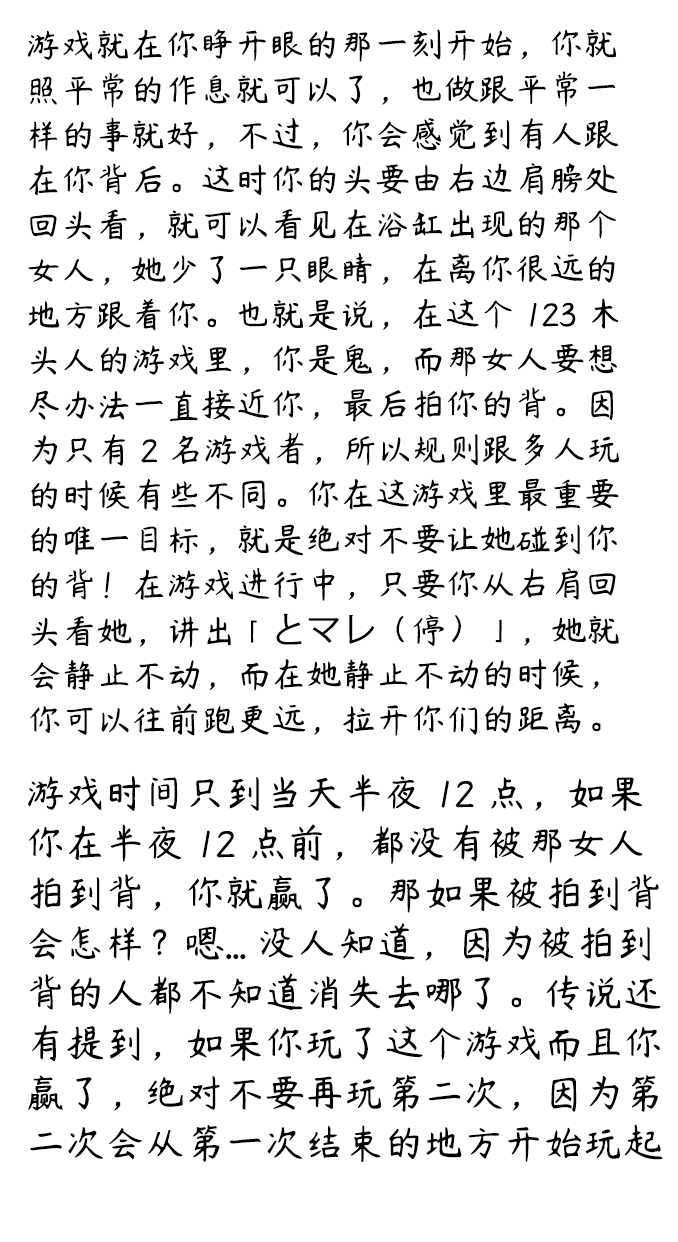 游戏就在你睁开眼的那一刻开始，你就
照平常的作息就可以了，也做跟平常一
样的事就好，不过，你会感觉到有人跟
在你背后。这时你的头要由右边肩膀处
回头看，就可以看见在浴缸出现的那个
女人，她少了一只眼睛，在离你很远的
地方跟着你。也就是说，在这个 123 木
头人的游戏里，你是鬼，而那女人要想
尽办法一直接近你，最后拍你的背。因
为只有 2 名游戏者，所以规则跟多人玩
的时候有些不同。你在这游戏里最重要
的唯一目标，就是绝对不要让她碰到你
的背！在游戏进行中，只要你从右肩回
头看她，讲出「とマレ（停）」，她就
会静止不动，而在她静止不动的时候，
你可以往前跑更远，拉开你们的距离。
游戏时间只到当天半夜 12 点，如果
你在半夜 12 点前，都没有被那女人
拍到背，你就赢了。那如果被拍到背
会怎样？嗯... 没人知道，因为被拍到
背的人都不知道消失去哪了。传说还
有提到，如果你玩了这个游戏而且你
赢了，绝对不要再玩第二次，因为第
二次会从第一次结束的地方开始玩起